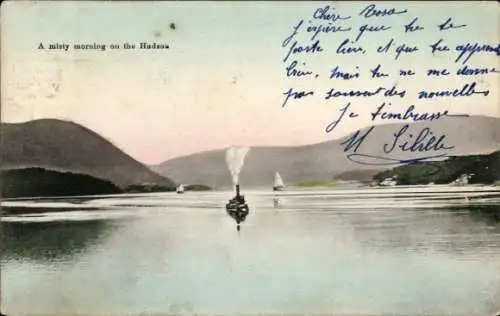 A misty morning on the Hudson
Chère Rosa
J'espère que tu te
porte bien, et que tu apprend
bien, mais tu ne me donne
pas souvent des nouvelles
Je t'embrasse